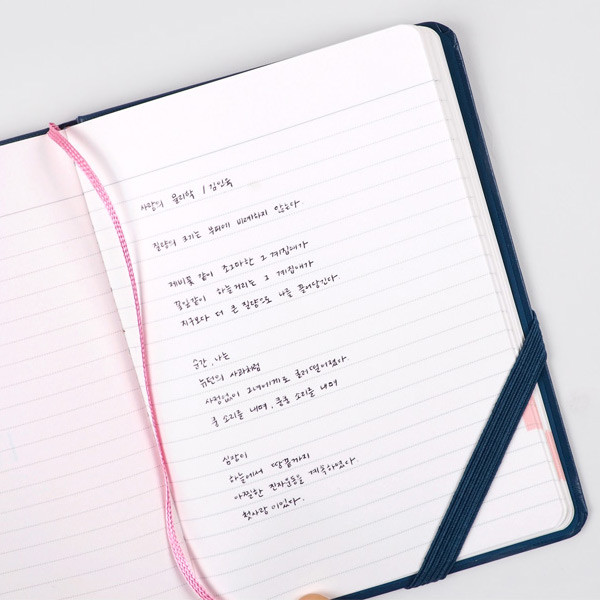 사랑의 물리학 / 김인육
질량의 크기는 부피에 비례하지 않는다.
제비꽃 같이 조그마한 그 계집애가
꽃잎같이 하늘거리는 그 계집애가
지구보다 더 큰 질량으로 나를 끌어당긴다.
순간, 나는
뉴턴의 사과처럼
사정없이 그녀에게로 굴러 떨어졌다
쿵 소리를 내며, 쿵쿵 소리를 내며
심장이
하늘에서 땅끝까지
아찔한 진자운동을 계속하였다.
첫사랑이었다.